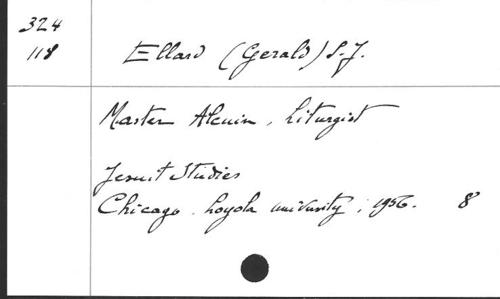 324
118
Ellard (Gerald) S.J.
Master Alcuin, Liturgist
Jesuit Studies
Chicago. Loyola university; 1956. 8